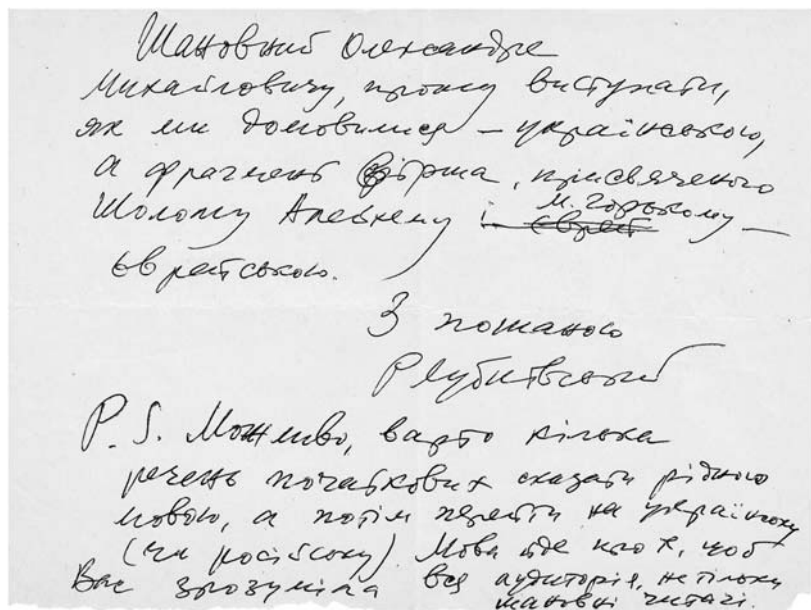 Шановний Олександре
Михайловичу, прошу виступати,
як ми домовилися – українською,
а фрагмент вірша, присвяченого
Шолому Алейхему і М. Горькому –
єврейською.
З пошаною
Р Лубківський
P.S. Можливо, варто кілька
речень початкових сказати рідною
мовою, а потім перейти на українську
(чи російську) Мова йде про те, щоб
Вас зрозуміла вся аудиторія, не тільки
шановні читачі.